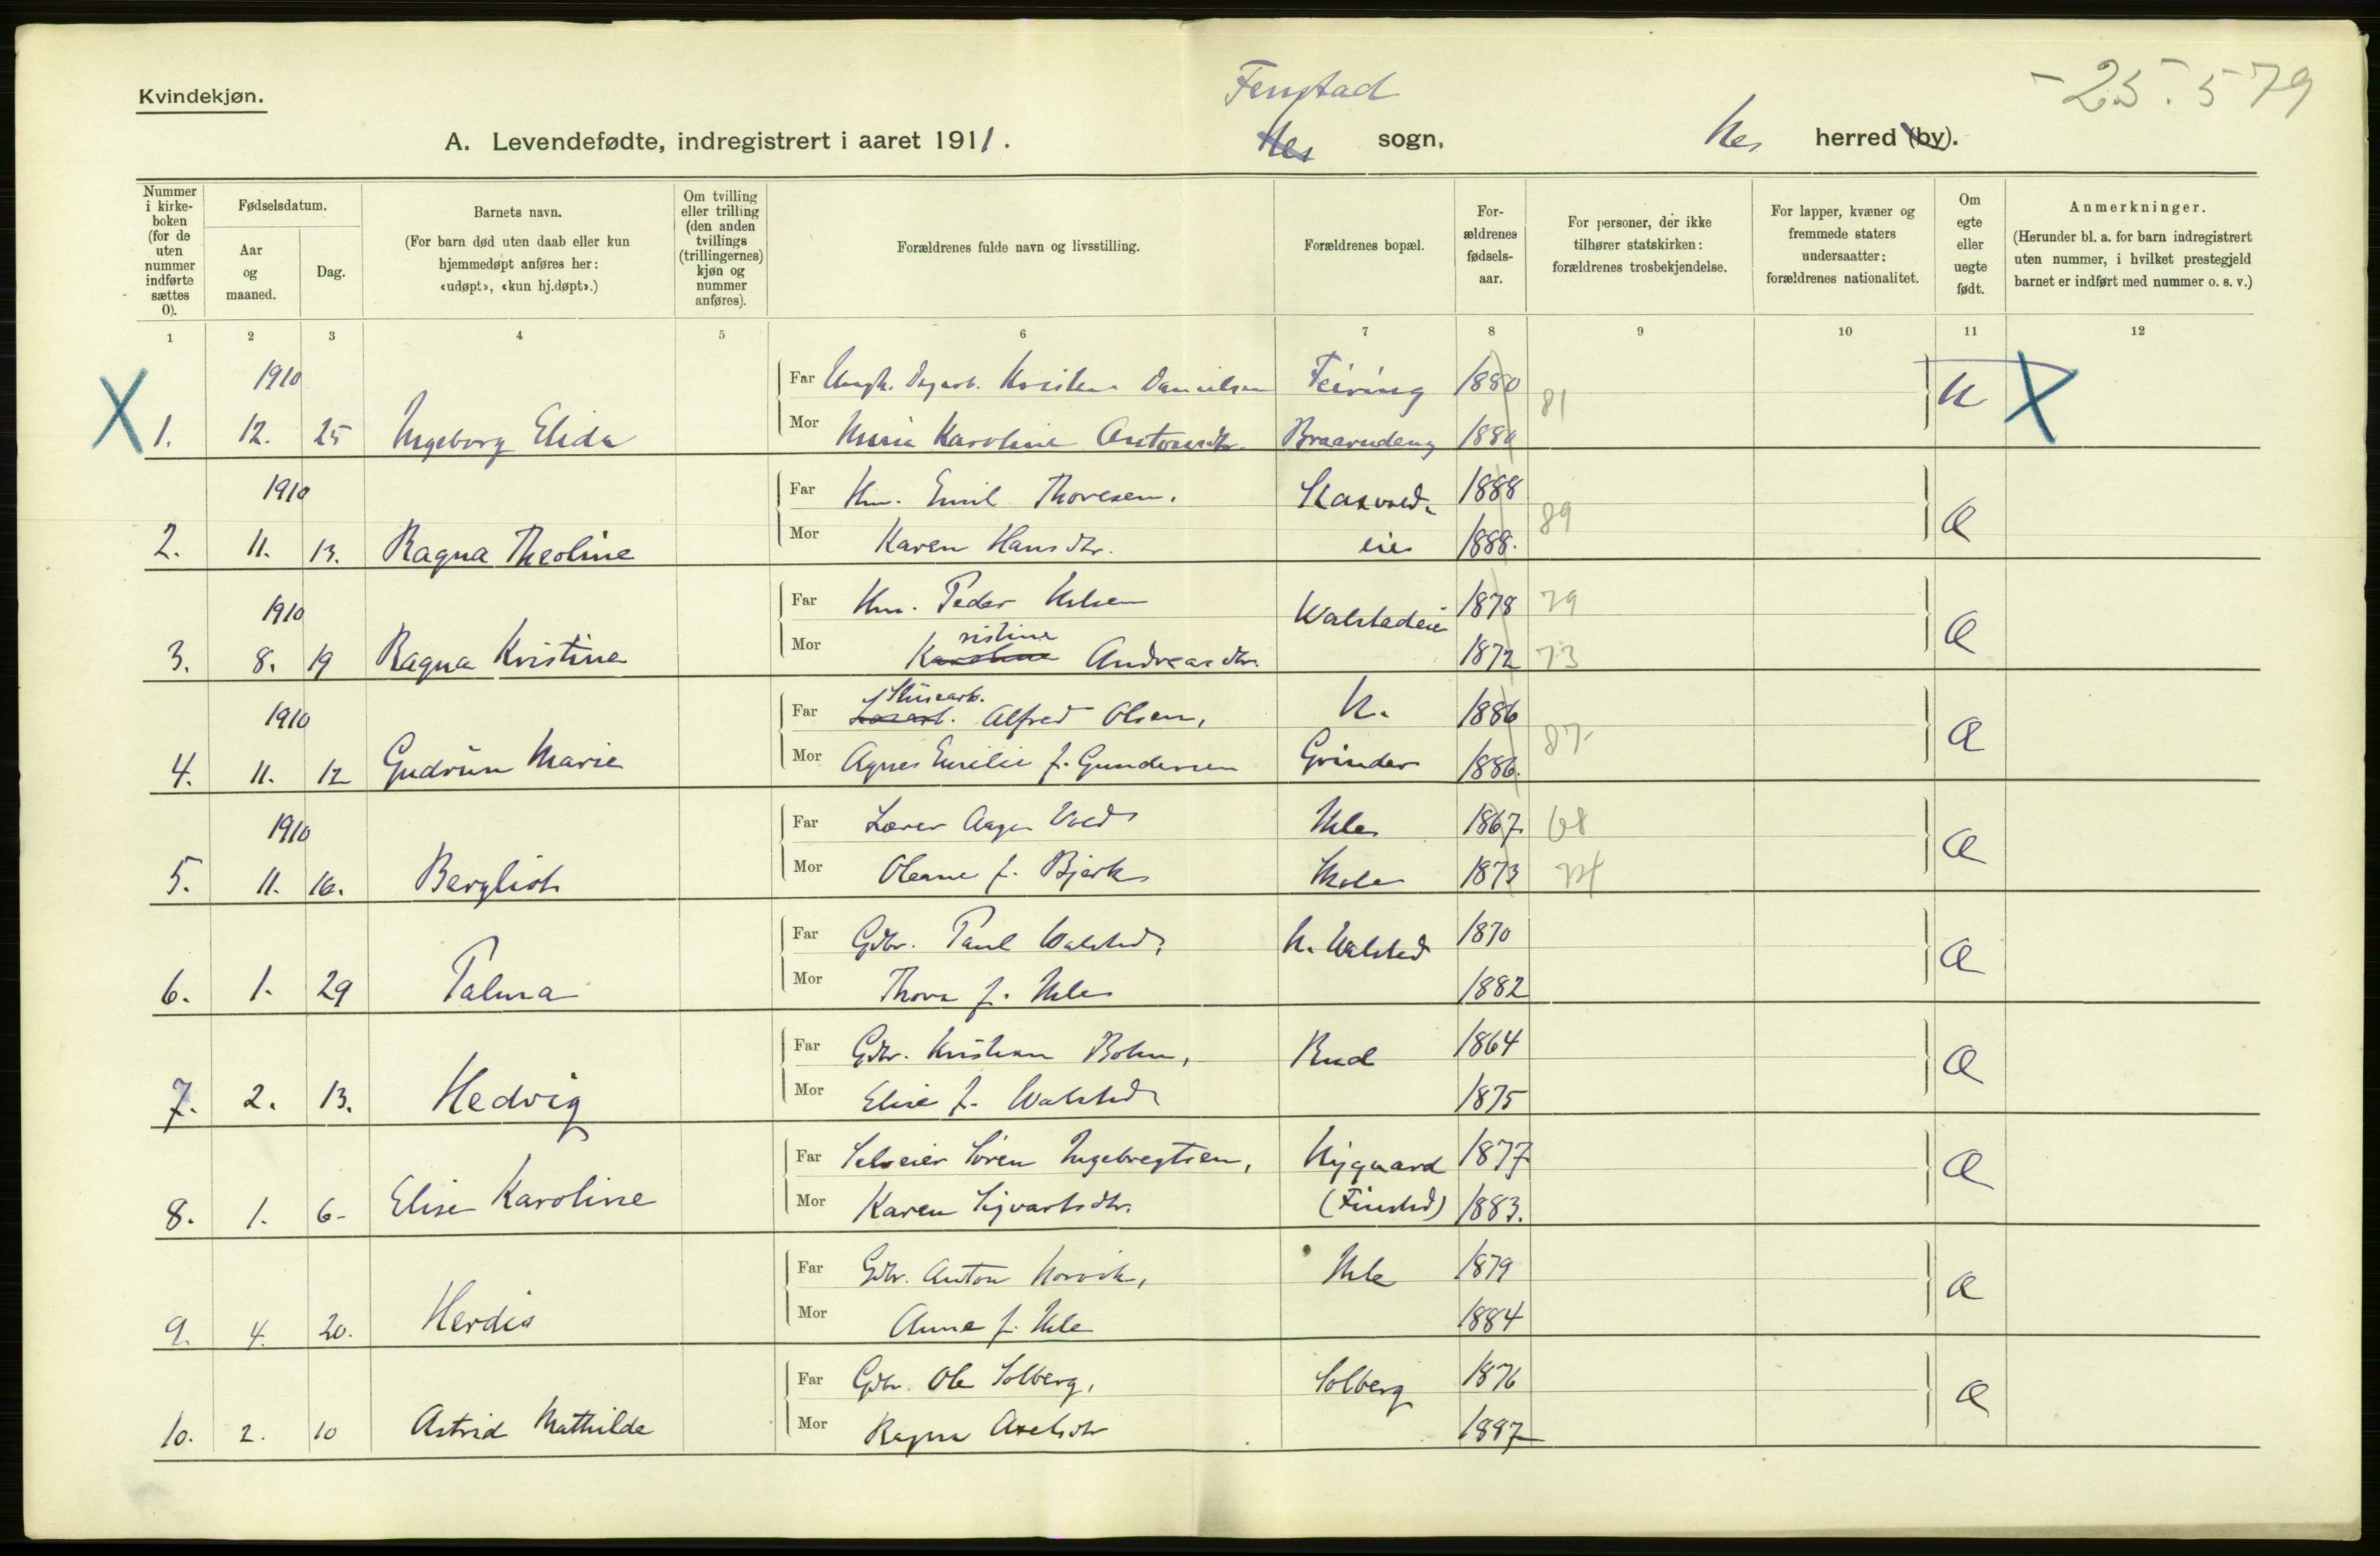 Kvindekjøn.
Fenstad
- 25. 579
A. Levendefødte, indregistrert i aaret 1911.
Nes sogn, Nes herred (by).
Nummer i kirkeboken (for de uten nummer indførte sættes 0).
Fødselsdatum.
Aar og maaned.
Dag.
Barnets navn.
(For barn død uten daab eller kun hjemmedøpt anføres her: «udøpt», «kun hj.døpt».)
Om tvilling eller trilling (den anden tvillings (trillingernes) kjøn og nummer anføres).
Forældrenes fulde navn og livsstilling.
Forældrenes bopæl.
For-ældrenes fødsels-aar.
For personer, der ikke tilhører statskirken: forældrenes trosbekjendelse.
For lapper, kvæner og fremmede staters undersaatter: forældrenes nationalitet.
Om egte eller uegte født.
Anmerkninger.
(Herunder bl. a. for barn indregistrert uten nummer, i hvilket prestegjeld barnet er indført med nummer o. s. v.)
1 2 3 4 5 6 7 8 9 10 11 12
1910
Far Ungk. Dagarb. Kristian Danielsen Feiring 1880 81 U
X 1. 12. 25 Ingeborg Elida Mor Karoline Antonsdtr. 1880 X
1910
Far Hm. Emil Thoresen. 1888 89 Æ
2. 11. 13. Ragna Theoline Mor Karen Hansdtr. eie 1888.
1910
Far Hm. Peder Nilsen Walstadeie 1878 79 Æ
ristine
3. 8. 19 Ragna Kristine Mor Karoline Andreasdtr. 1872 73
1910
Far Alfred Olsen, N. 1886 87 Æ
4. 11. 12 Gudrun Marie Mor Agnes Emilie f. Gundersen Grinder 1886.
1910
Far Lærer Aage 1867 68 Æ
5. 11. 16. Bergliot Mor Oleane f. Bjerke Skole 1873 74
Far Gdbr. Paul Walstad, N. Walstad 1870 Æ
6. 1. 29 Palma Mor Thora f. Hele 1882
Far Gdbr. Kristian Bohn, Rud 1864 Æ
7. 2. 13. Hedvig Mor Elise f. Walstad 1875
Far Selveier Søren Ingebregtsen, Nygaard 1877 Æ
8. 1. 6. Elise Karoline Mor Karen Sigvartsdtr. (Finstad) 1883.
Far Gdbr. Anton 1879 Æ
9. 4. 20. Herdis Mor Anne f. 1884
Far Gdbr. Ole Solberg, Solberg 1876 Æ
10. 2. 10 Astrid Mathilde Mor Ragna Axelsdtr 1887